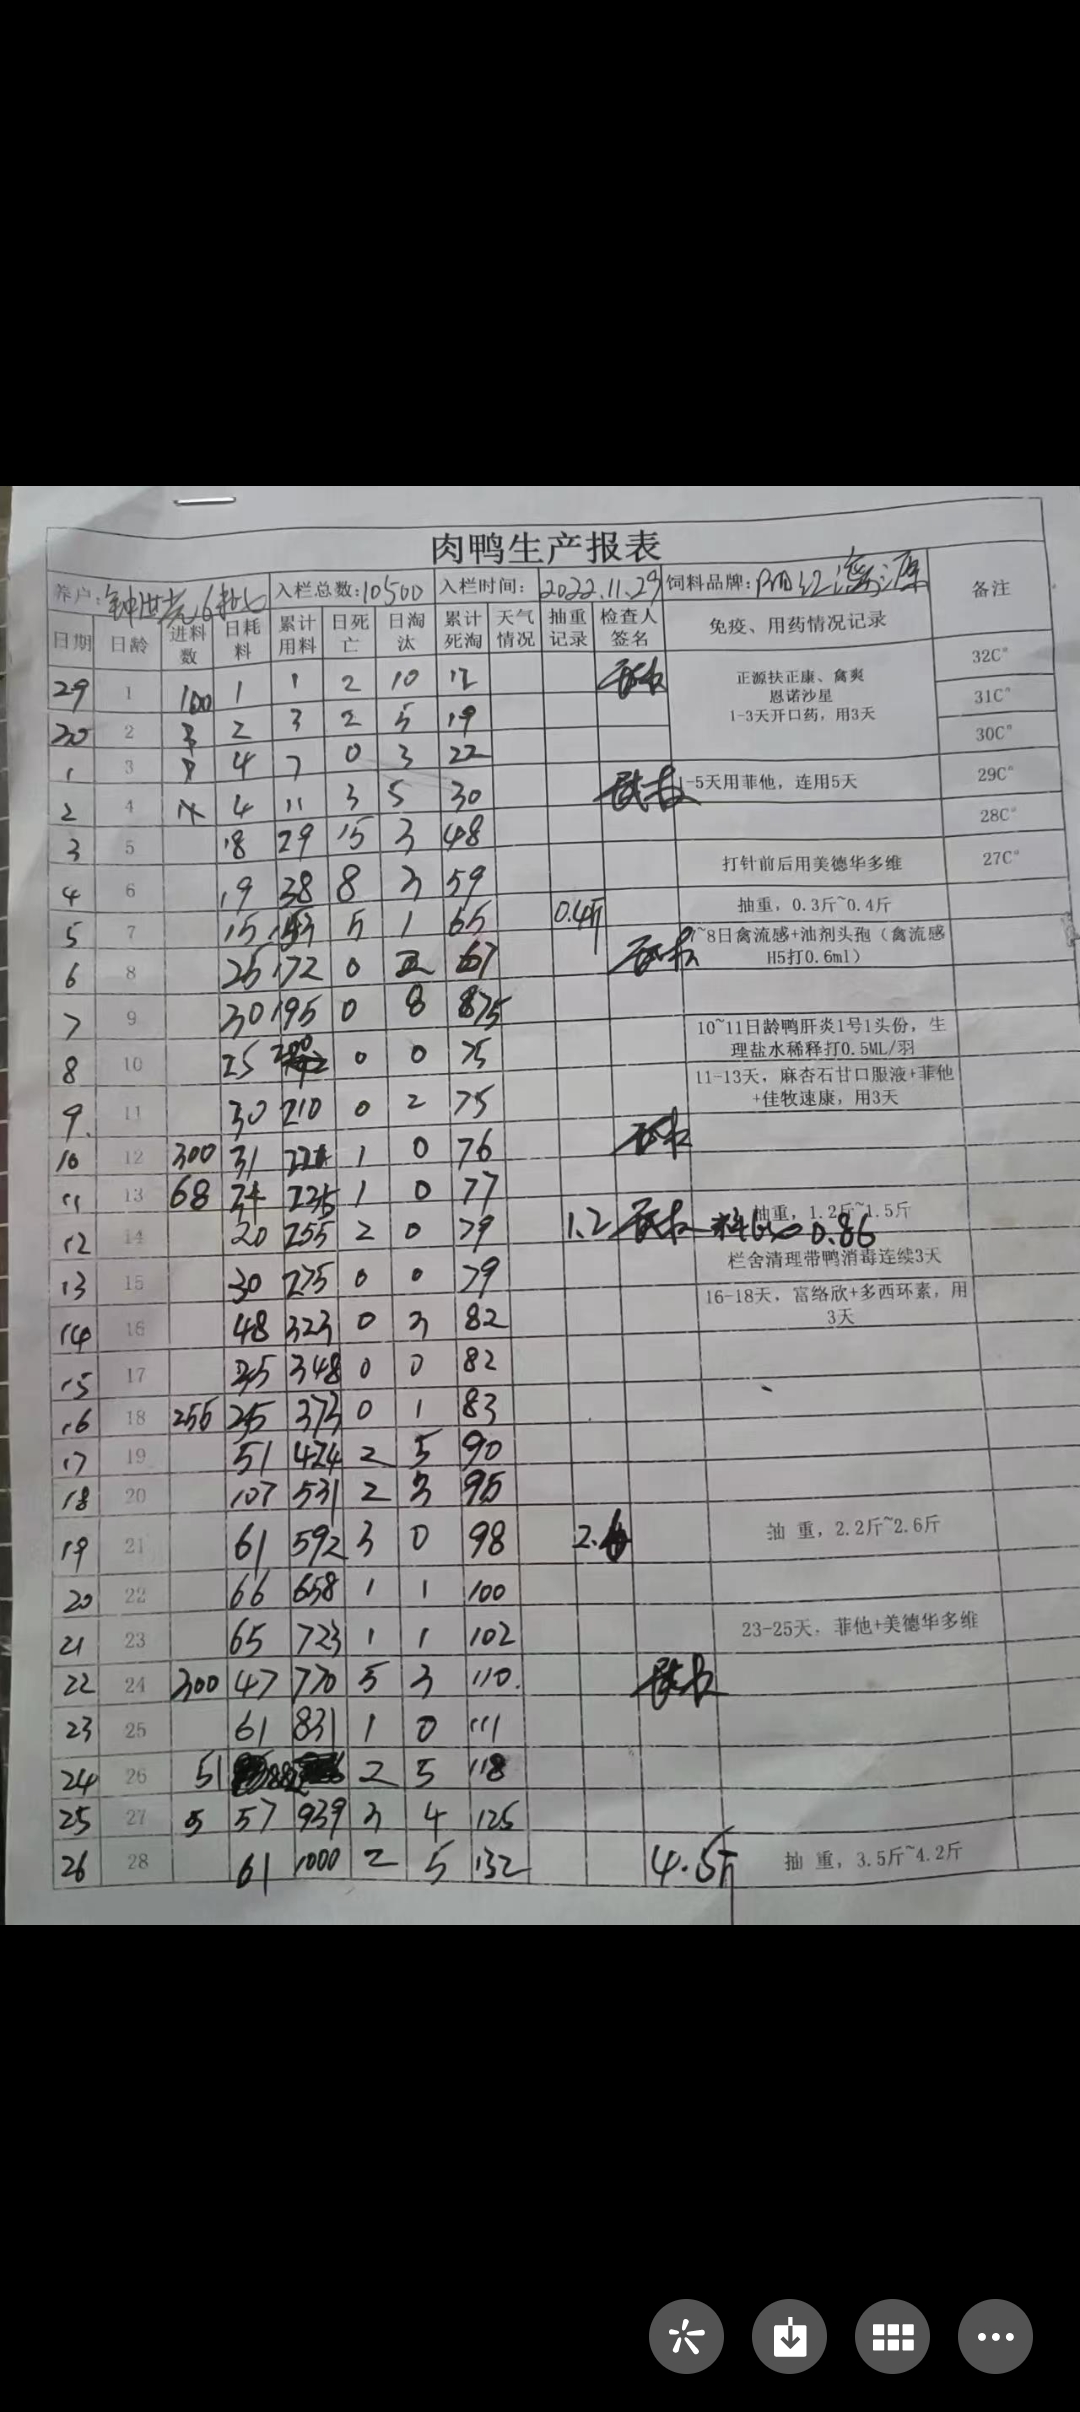 肉鸭生产报表
养户: 入栏总数:10500 入栏时间: 2022.11.29 饲料品牌: 备注
日期 日龄 进料数 日耗料 累计用料 日死亡 日淘汰 累计死淘 天气情况 抽重记录 检查人签名 免疫、用药情况记录
29 1 100 1 1 2 10 12 正源扶正康、禽爽 恩诺沙星 1-3天开口药，用3天 32C°
31C°
30 2 2 3 2 5 19 30C°
1 3 4 7 0 3 22
2 4 4 11 3 5 30 1-5天用菲他，连用5天 29C°
3 5 18 29 15 3 48 28C°
4 6 19 38 8 3 59 打针前后用美德华多维 27C°
5 7 15 5 1 65 0.4斤 抽重，0.3斤~0.4斤
6 8 25 172 0 67 7~8日禽流感+油剂头孢（禽流感H5打0.6ml）
7 9 30 195 0 8 75
8 10 25 0 0 75 10~11日龄鸭肝炎1号1头份，生理盐水稀释打0.5ML/羽
9 11 30 210 0 2 75 11-13天，麻杏石甘口服液+菲他+佳牧速康，用3天
10 12 300 31 1 0 76
11 13 68 24 235 1 0 77
12 14 20 255 2 0 79 1.2 抽重，1.2斤~1.5斤 0.86
13 15 30 275 0 0 79 栏舍清理带鸭消毒连续3天
14 16 48 323 0 3 82 16-18天，富络欣+多西环素，用3天
15 17 348 0 0 82
16 18 255 25 373 0 1 83
17 19 51 424 2 5 90
18 20 107 531 2 3 95
19 21 61 592 3 0 98 抽 重，2.2斤~2.6斤
20 22 66 658 1 1 100
21 23 65 723 1 1 102 23-25天，菲他+美德华多维
22 24 300 47 770 5 3 110
23 25 61 831 1 0 111
24 26 51 2 5 118
25 27 57 939 3 4 125
26 28 61 1000 2 5 132 4.5斤 抽 重，3.5斤~4.2斤